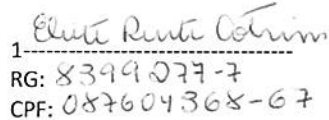 Elieti Rente Cotrim
1-----------------------------------
RG: 8399277-7
CPF: 087604368-67